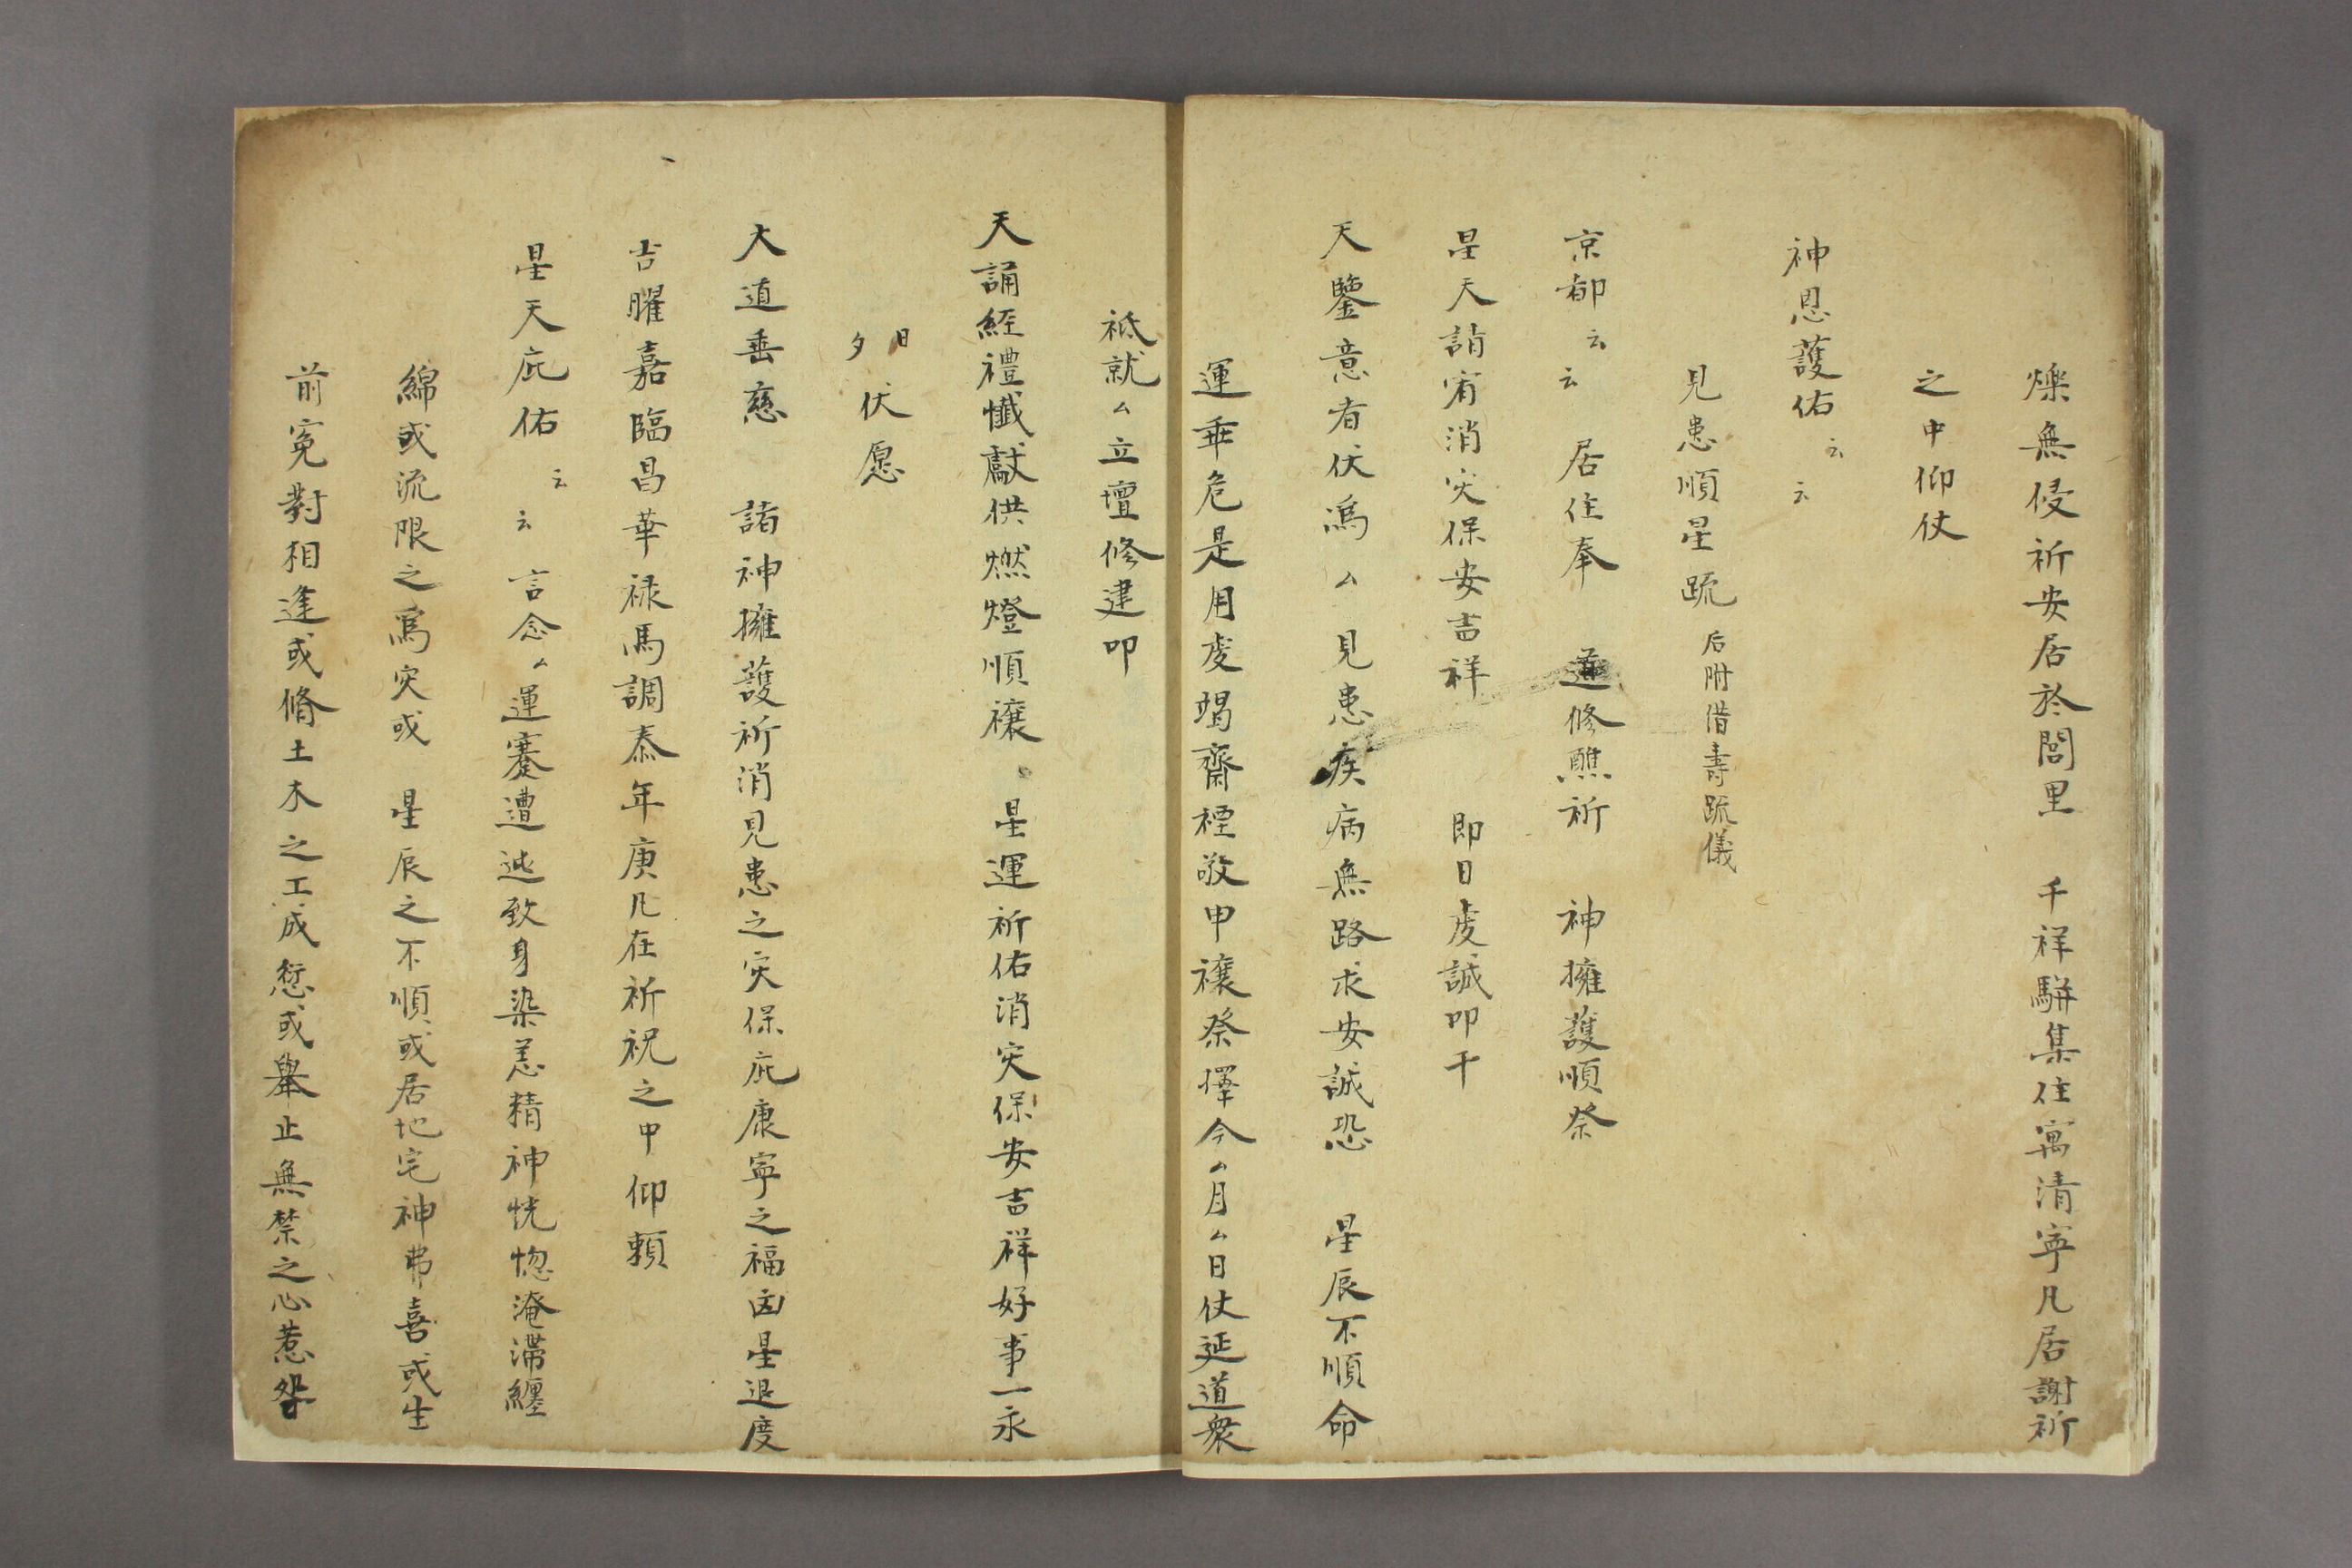 爍無侵祈安居於閭里 千祥駢集住寓清寧凡居謝祈
之中仰仗
神恩護佑云云
見患順星疏 后附借壽疏儀
京都云云居住奉 道修醮祈 神擁護順祭
星天誚宥消灾保安吉祥 即日虔誠叩干
天鑒意者伏為ム見患疾病無路求安誠恐 星辰不順命
運乖危是用虔竭齋禋敬申禳祭擇今ム月ム日仗延道衆
祗就ム立壇修建叩
天誦經禮懺獻供燃燈順禳 星運祈佑消灾保安吉祥好事一永
日夕伏愿
大道垂慈 諸神擁護祈消見患之灾保庇康寧之福凶星退度
吉曜嘉臨昌華禄馬調泰年庚凡在祈祝之中仰頼
星天庇佑云云言念ム運蹇遭迍致身染恙精神恍惚淹滯纏
綿或流限之為灾或 星辰之不順或居地宅神弗喜或生
前寃對相逢或脩土木之工成愆或舉止無禁之心惹咎